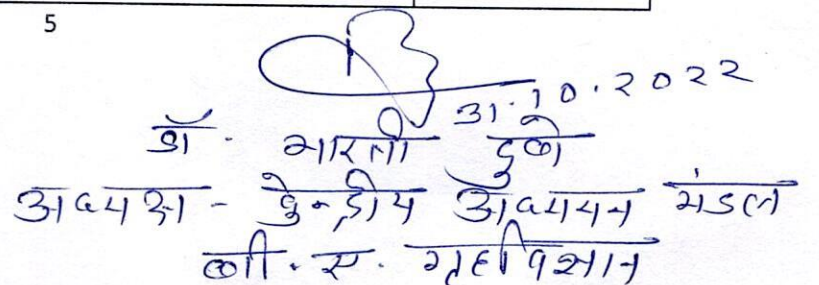 5
31.10.2022
डॉ. भारती दुबे
अध्यक्ष - केन्द्रीय अध्ययन मंडल
बी. स. गृहविज्ञान